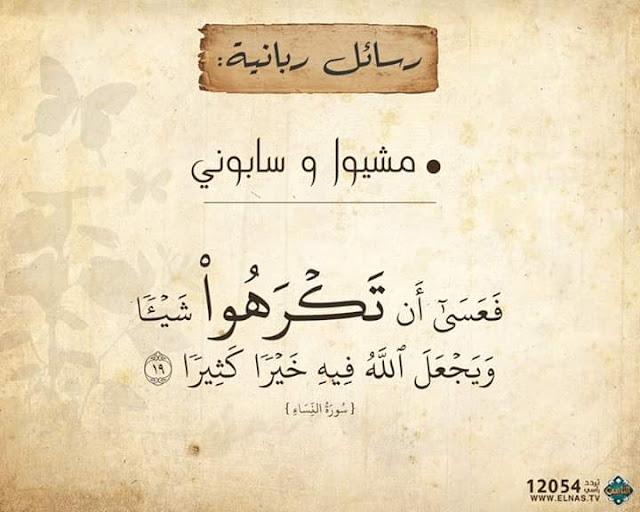 رسائل ربانية:
• مشيوا و سابوني
فَعَسَىٰٓ أَن تَكۡرَهُواْ شَيۡـٔٗا
وَيَجۡعَلَ ٱللَّهُ فِيهِ خَيۡرٗا كَثِيرٗا ١٩
{سُورَةُ النِّسَاءِ}
12054 تردد رأسي
WWW.ELNAS.TV
الناس